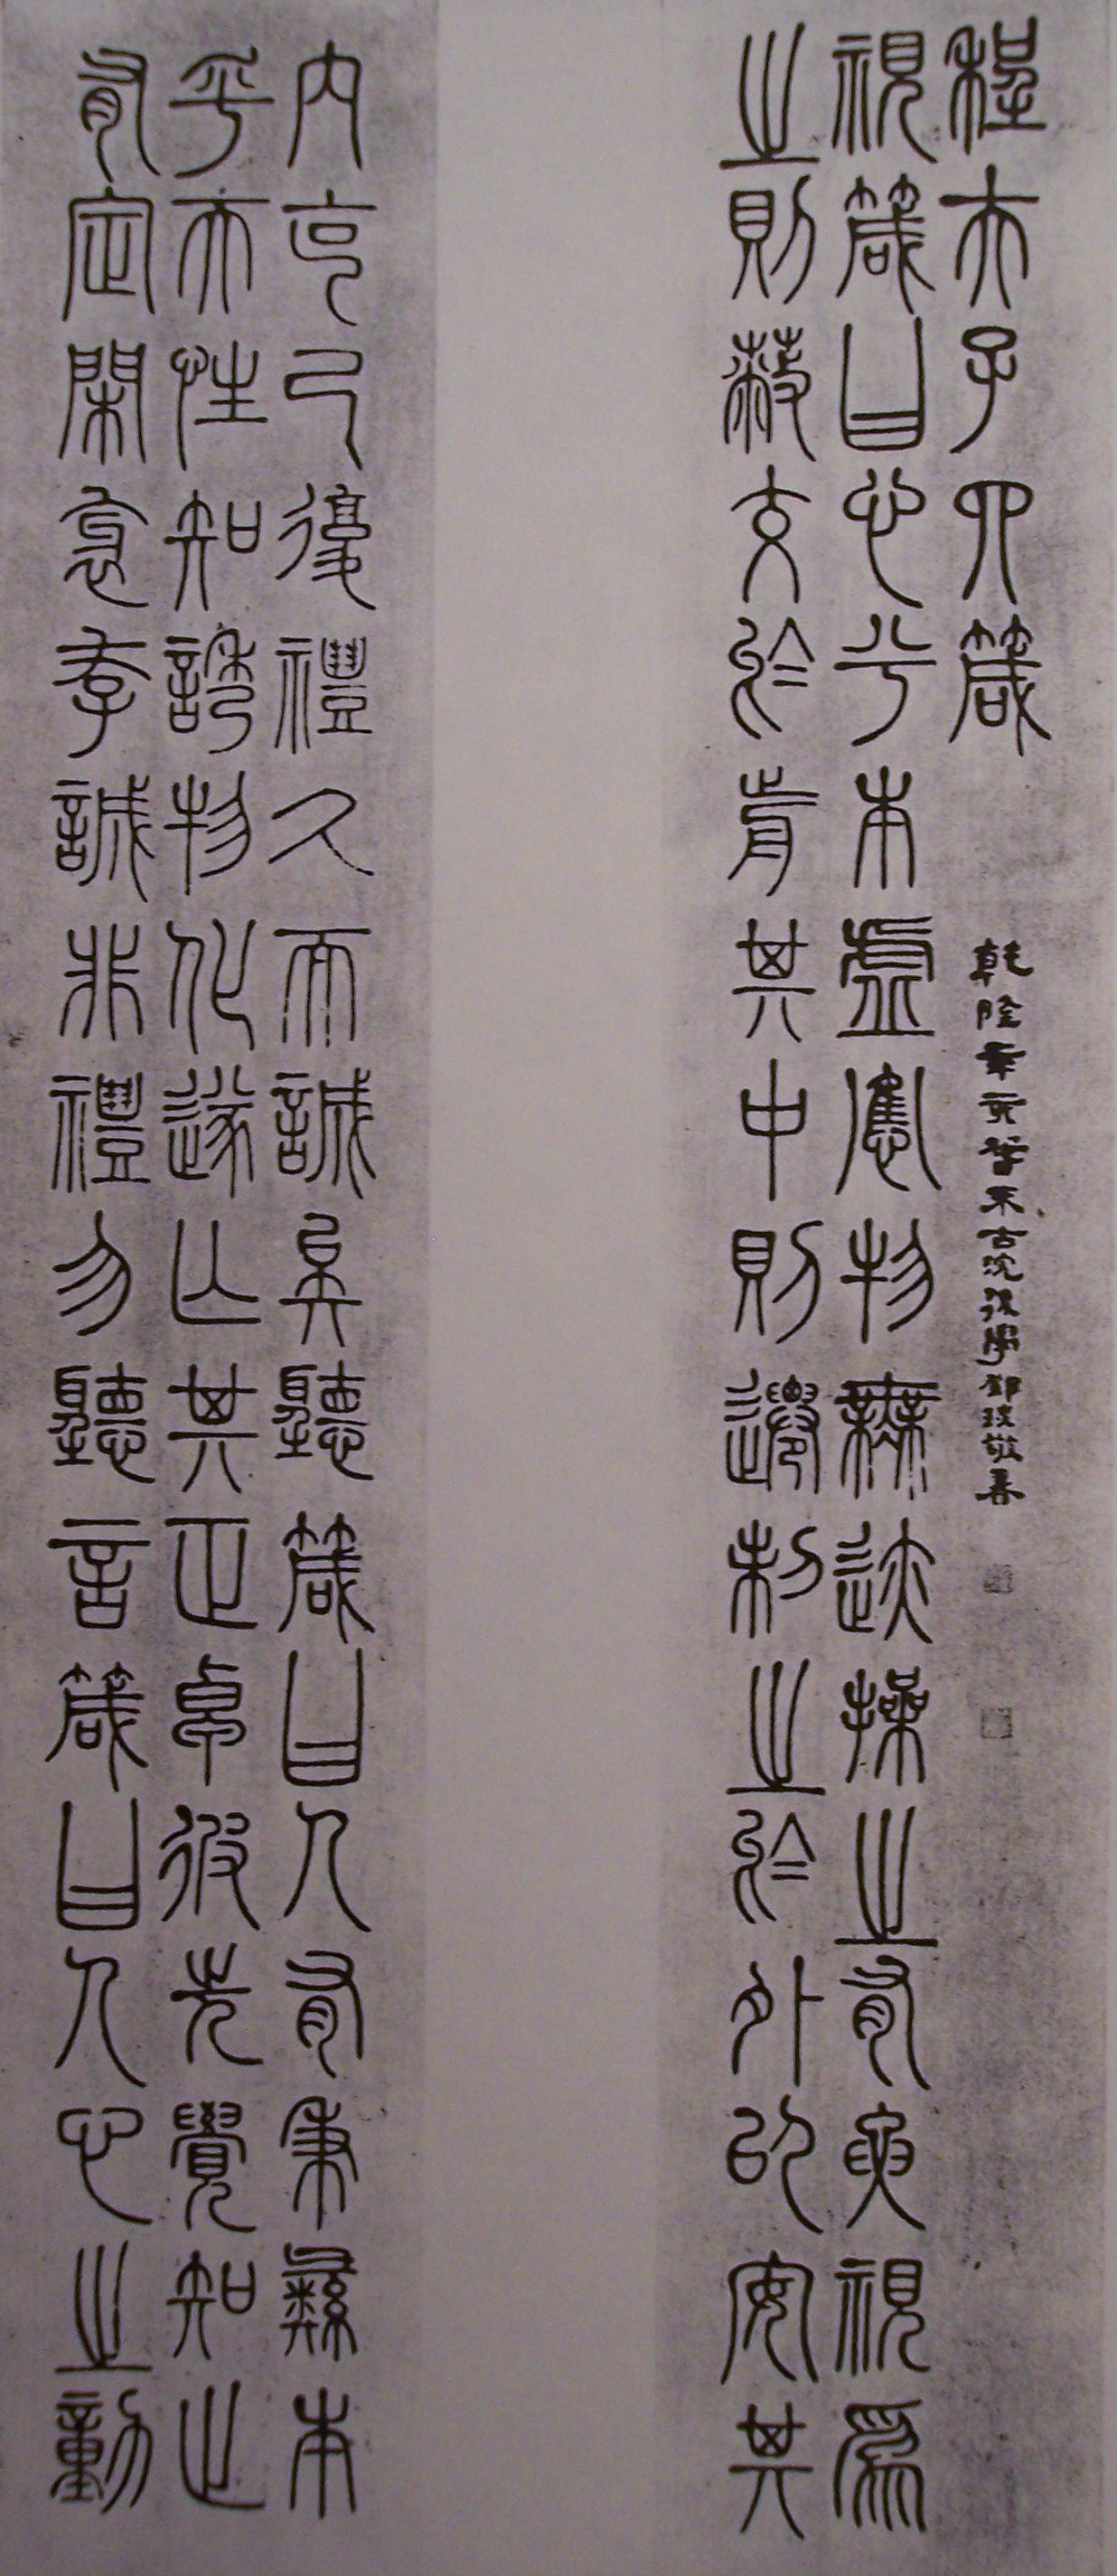 程夫子四箴
乾隆辛亥 古浣後學鄧琰敬書
視箴曰心兮本虛應物無迹操之有要視爲
之則蔽交於前其中則遷制之於外以安其
内克己復禮久而誠矣聽箴曰人有秉彝本
乎天性知誘物化遂亡其正卓彼先覺知止
有定閑邪存誠非禮勿聽言箴曰人心之動